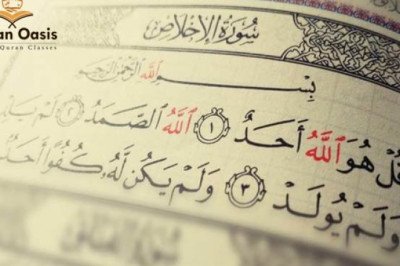 an Oasis
Quran Classes
سُورَةُ الإِخْلَاصِ
بِسْمِ ٱللَّهِ ٱلرَّحْمَٰنِ ٱلرَّحِيمِ
قُلْ هُوَ ٱللَّهُ أَحَدٌ ١ ٱللَّهُ ٱلصَّمَدُ ٢ لَمْ يَلِدْ
وَلَمْ يُولَدْ ٣ وَلَمْ يَكُن لَّهُۥ كُفُوًا أَحَدٌ